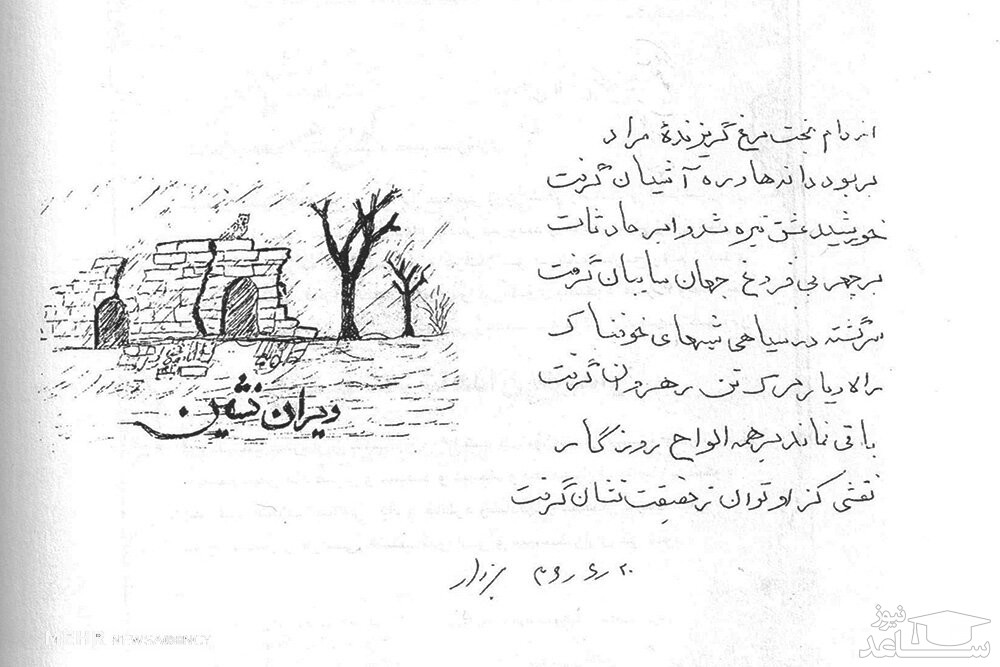 از دام بخت مرغ گریزندهٔ مراد
بربود دانه‌ها و ره آشیان گرفت
خورشید عشق تیره شد و ابر حادثات
بر چهر بی فروغ جهان سایبان گرفت
سرگشته در سیاهی شبهای خوفناک
راه دیار مرگ تن رهروان گرفت
باقی نماند بر همه الواح روزگار
نقشی کز او توان ز حقیقت نشان گرفت
ویران نشین
NEWSAGENCY
نیوز
ساعد